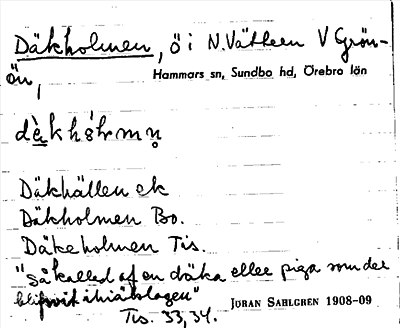 Däkholmen, ö i N. Vättern V Grön-
ön,
Hammars sn, Sundbo hd, Örebro län
Däkhällen ek
Däkholmen Bo.
Däkeholmen Tis.
"Så kallad af en däka eller piga som der
blifvit ihiälslagen"
JÖRAN SAHLGREN 1908-09
Tis. 33, 34.